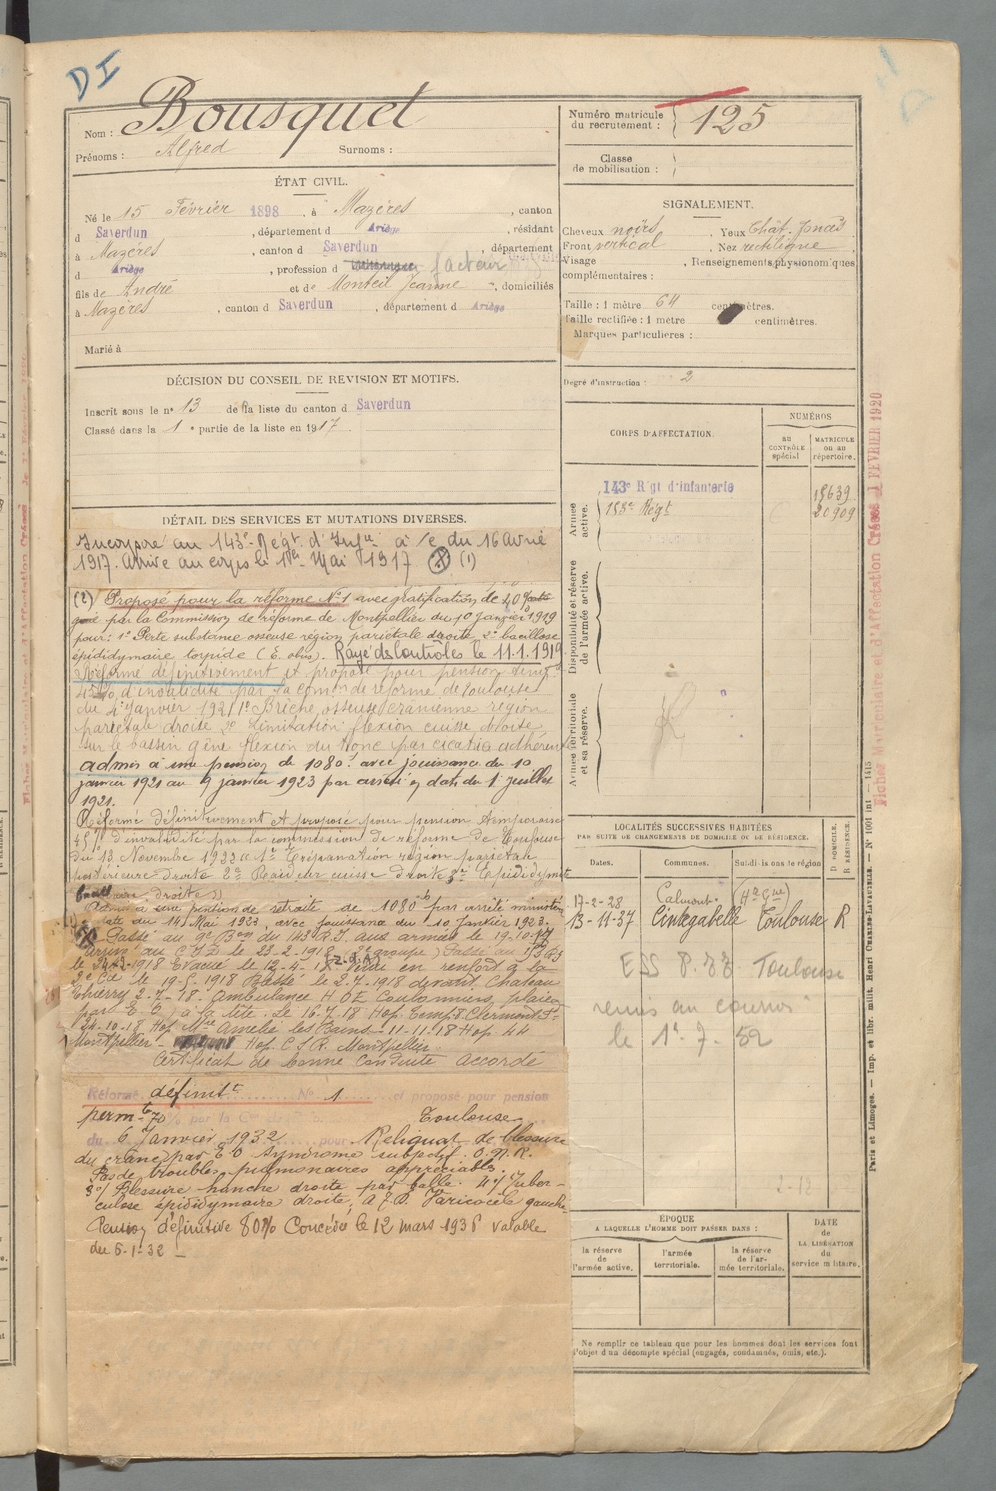 DI
Nom : Bousquet
Prénoms : Alfred Surnoms :
Numéro matricule
du recrutement : 125
Classe
de mobilisation :
ÉTAT CIVIL.
Né le 15 Février 1898, à Mazères, canton
d Saverdun, département d Ariège, résidant
à Mazères, canton d Saverdun, département
d Ariège, profession d facteur
fils de André et de Monteil Jeanne, domiciliés
à Mazères, canton d Saverdun, département d Ariège
Marié à
SIGNALEMENT.
Cheveux noirs. Yeux Chât. foncés
Front vertical. Nez rectiligne
Visage. Renseignements physionomiques
complémentaires :
Taille : 1 mètre 64 centimètres.
Taille rectifiée : 1 mètre centimètres.
Marques particulières :
Degré d'instruction : 2
DÉCISION DU CONSEIL DE REVISION ET MOTIFS.
Inscrit sous le n° 13 de la liste du canton d Saverdun
Classé dans la 1e partie de la liste en 1917.
CORPS D'AFFECTATION.
NUMÉROS
au
CONTRÔLE
spécial
MATRICULE
ou au
répertoire.
Armée
active.
143e Rgt d'infanterie 15639
153e Régt 20909
Disponibilité et réserve
de l'armée active.
Armée territoriale
et sa réserve.
DÉTAIL DES SERVICES ET MUTATIONS DIVERSES.
Incorporé au 143e Régt d'Infie à c/ du 16 Avril
1917. Arrivé au corps le 1er Mai 1917 (1)
(2) Proposé pour la réforme N°1 avec gratification de 40
par la Commission de réforme de Montpellier du 10 janvier 1919
pour : 1° Perte substance osseuse région pariétale droite 2° bacillose
épididymaire torpide (E. obus). Rayé des Contrôles le 11.1.1919
Réformé définitivement et proposé pour pension temp
45% d'invalidité par la comon de réforme de Toulouse
du 4 Janvier 1921 1° Brèche osseuse crânienne région
pariétale droite 2° Limitation flexion cuisse droite
sur le bassin gêne flexion du tronc par cicatrice adhérente
admis à une pension de 1080f avec jouissance du 10
janvier 1921 au 9 janvier 1923 par arrêté en date du 1 juillet
1921.
Réformé définitivement et proposé pour pension temporaire
45% d'invalidité par la commission de réforme de Toulouse
du 13 Novembre 1922 1° Trépanation région pariétale
postérieure droite 2° Raideur cuisse droite 3° Epididymite
bacillaire droite
Admis à une pension de retraite de 1080f par arrêté ministériel
date du 14 Mai 1923, avec jouissance du 10 Janvier 1923.
Passé au 9e Bon du 143 R.I. aux armées le 19-10-17
au C I D le 23-2-1918 Passé au 153 R.I
1918 Evacué le 12-4-18 Venu en renfort à la
2e Cie le 19-5-1918 Blessé le 2-7-1918 devant Château
Thierry 2-7-18. Ambulance H O E Coulommiers, plaies
par E. O. à la tête. Le 16-7-18 Hop. Temp. Clermont Fd
24-10-18 Hop. Mre Amélie les Bains - 11-11-18 Hop. 44
Montpellier - Hop. C S R. Montpellier
Certificat de bonne conduite accordé
Réformé définitt N° 1 et proposé pour pension
permte % par la Con Toulouse
du 6 Janvier 1932 pour Reliquat de blessure
du crâne par E O Syndrome subjectif. O.N.R.
Pas de troubles pulmonaires appréciables.
3°/ Blessure hanche droite par balle. 4°/ Tuber-
culose épididymaire droite, Varicocèle gauche
Pension définitive 80% Concédée le 12 mars 1935 valable
du 6-1-32
LOCALITÉS SUCCESSIVES HABITÉES
PAR SUITE DE CHANGEMENTS DE DOMICILE OU DE RÉSIDENCE.
Dates. Communes. Subdivisions de région D DOMICILE. R RÉSIDENCE.
17-2-28 Calmont (Hte Gne)
13-11-37 Cintegabelle Toulouse R
ESS P.TT Toulouse
remis au courrier
le 1.7.52
ÉPOQUE
A LAQUELLE L'HOMME DOIT PASSER DANS :
la réserve
de
l'armée active.
l'armée
territoriale.
la réserve
de l'ar-
mée territoriale.
DATE
de
LA LIBÉRATION
du
service militaire.
Ne remplir ce tableau que pour les hommes dont les services font
l'objet d'un décompte spécial (engagés, condamnés, omis, etc.).
Fiches Matriculaire et d'Affectation Créées 1 FEVRIER 1920
Paris et Limoges. — Imp. et libr. milit. Henri CHARLES-LAVAUZELLE. — N° 1001 — 1415